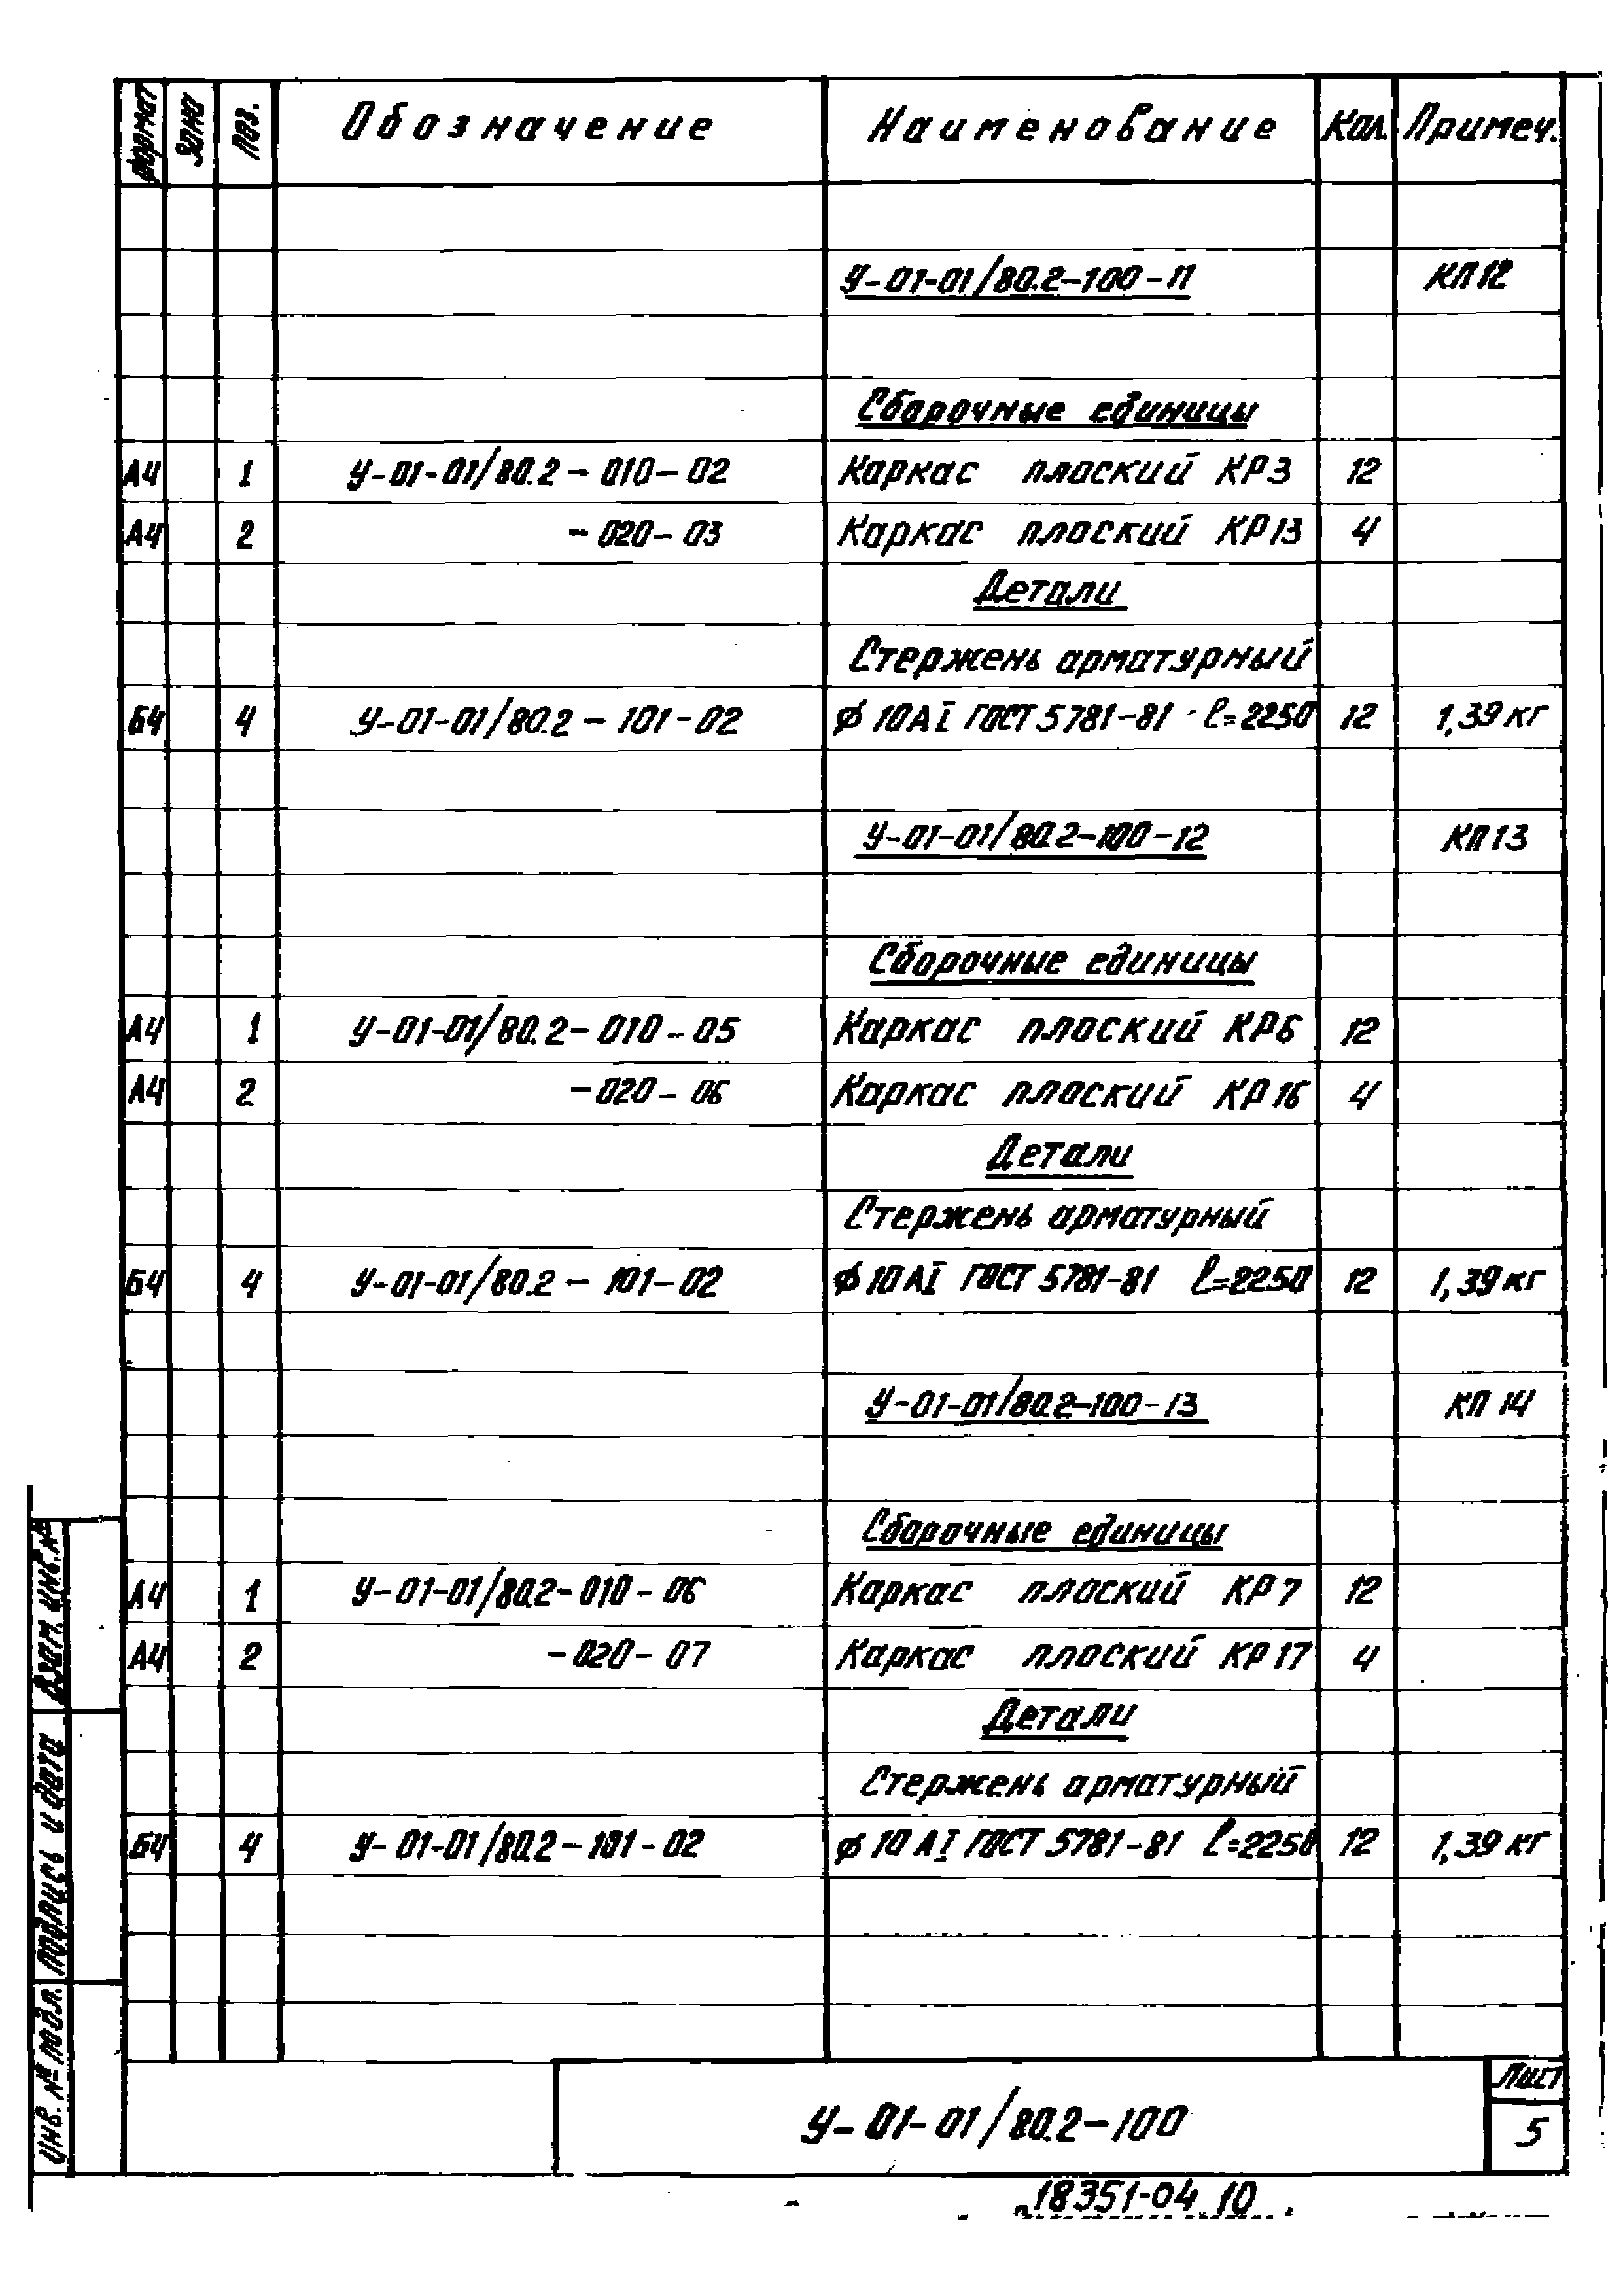 Формат Зона Поз. Обозначение Наименование Кол. Примеч.
У-01-01/80.2-100-11 КП12
Сборочные единицы
А4 1 У-01-01/80.2-010-02 Каркас плоский КР3 12
А4 2 -020-03 Каркас плоский КР13 4
Детали
Стержень арматурный
Б4 4 У-01-01/80.2-101-02 ϕ10АI ГОСТ 5781-81 ℓ=2250 12 1,39кг
У-01-01/80.2-100-12 КП13
Сборочные единицы
А4 1 У-01-01/80.2-010-05 Каркас плоский КР6 12
А4 2 -020-06 Каркас плоский КР16 4
Детали
Стержень арматурный
Б4 4 У-01-01/80.2-101-02 ϕ10АI ГОСТ 5781-81 ℓ=2250 12 1,39кг
У-01-01/80.2-100-13 КП14
Сборочные единицы
А4 1 У-01-01/80.2-010-06 Каркас плоский КР7 12
А4 2 -020-07 Каркас плоский КР17 4
Детали
Стержень арматурный
Б4 4 У-01-01/80.2-101-02 ϕ10АI ГОСТ 5781-81 ℓ=2250 12 1,39кг
Взам. инв. №
Подпись и дата
Инв. № подл.
У-01-01/80.2-100
Лист
5
18351-04 10